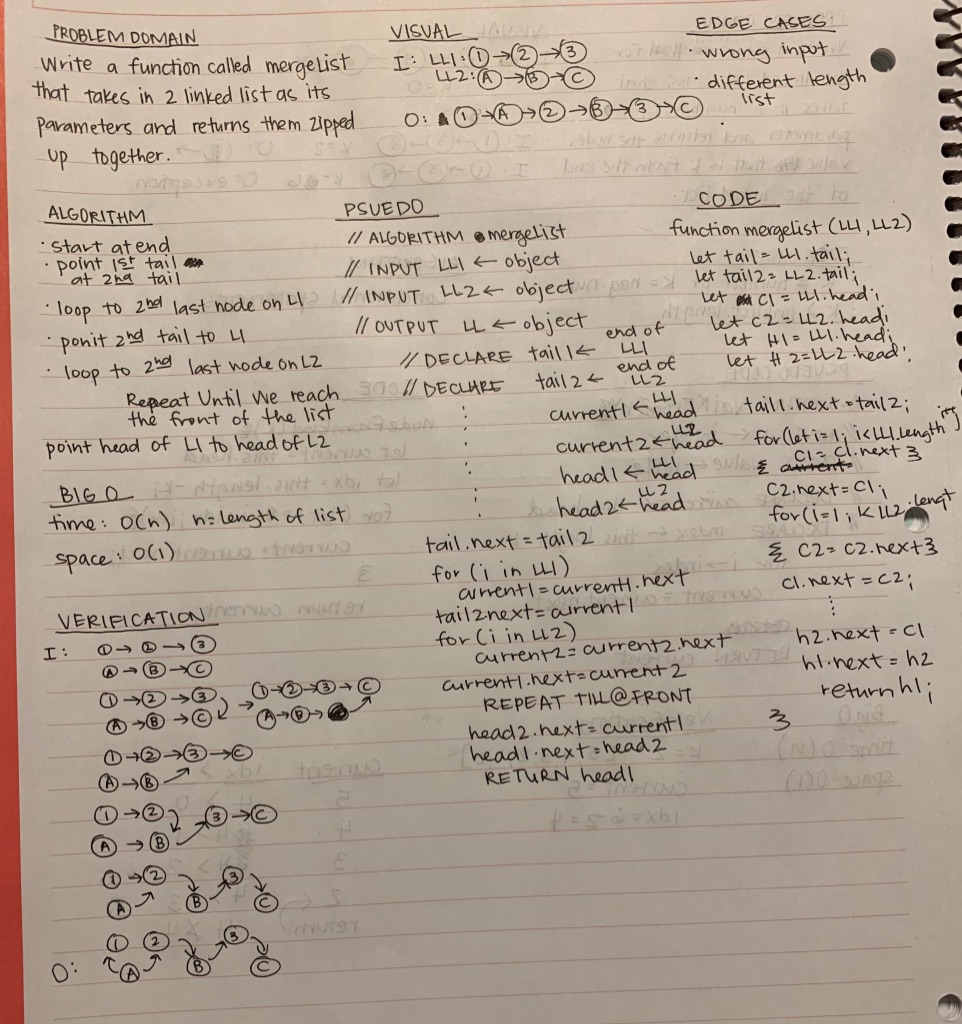 PROBLEM DOMAIN
Write a function called mergeList
that takes in 2 linked list as its
parameters and returns them zipped
up together.
VISUAL
I: LL1: 1 → 2 → 3
LL2: A → B → C
O: 1 → A → 2 → B → 3 → C
EDGE CASES
· wrong input
· different length
list
ALGORITHM
· start at end
· point 1st tail
at 2nd tail
· loop to 2nd last node on L1
· ponit 2nd tail to L1
· loop to 2nd last node on L2
Repeat Until We reach
the front of the list
point head of L1 to head of L2
BIG O
time: O(n) n = length of list
space: O(1)
VERIFICATION
I: 1 → 2 → 3
A → B → C
1 → 2 → 3
A → B → C
→ 1 → 2 → 3 → C
A → B →
1 → 2 → 3 → C
A → B
1 → 2 3 → C
A → B
1 → 2 3
A B C
1 2 3
O: A B C
PSUEDO
// ALGORITHM mergeList
// INPUT LL1 ← object
// INPUT LL2 ← object
// OUTPUT LL ← object
// DECLARE tail1 ← end of LL1
// DECLARE tail2 ← end of LL2
current1 ← LL1 head
current2 ← LL2 head
head1 ← LL1 head
head2 ← LL2 head
tail.next = tail2
for (i in LL1)
current1 = current1.next
tail2next = current1
for (i in LL2)
current2 = current2.next
current1.next = current2
REPEAT TILL @ FRONT
head2.next = current1
head1.next = head2
RETURN head1
CODE
function mergelist (LL1, LL2)
let tail = LL1.tail;
let tail2 = LL2.tail;
let C1 = LL1.head;
let C2 = LL2.head;
let H1 = LL1.head;
let H2 = LL2.head;
tail1.next = tail2;
for (let i = 1; i < LL1.length i++)
{ C1 = C1.next }
C2.next = C1;
for (i = 1; i < LL2.lengt
{ C2 = C2.next }
C1.next = C2;
⋮
h2.next = C1
h1.next = h2
return h1;
}